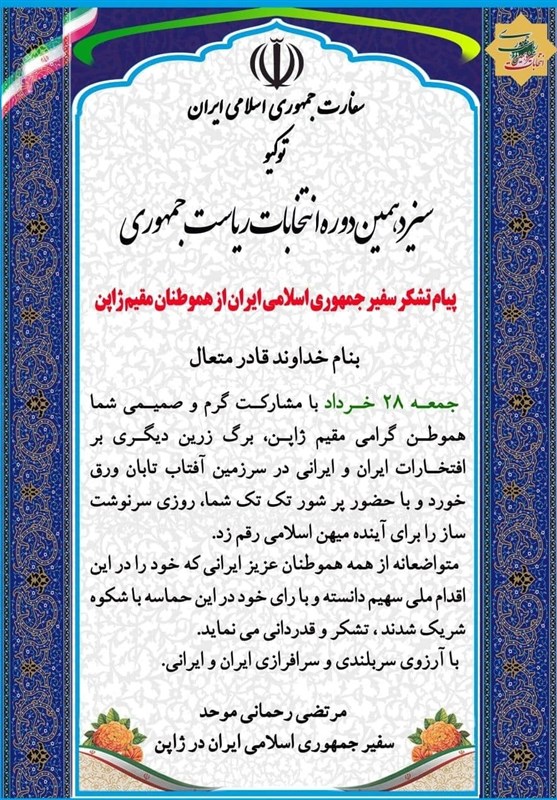 سفارت جمهوری اسلامی ایران
توکیو
سیزدهمین دوره انتخابات ریاست جمهوری
پیام تشکر سفیر جمهوری اسلامی ایران از هموطنان مقیم ژاپن
بنام خداوند قادر متعال
جمعـه ۲۸ خـرداد با مشارکـت گرم و صمیـمی شما
هموطـن گرامی مقیم ژاپـن، برگ زرین دیگـری بر
افتخـارات ایران و ایرانی در سرزمین آفتاب تابان ورق
خورد و با حضور پر شور تک تک شما، روزی سرنوشت
ساز را برای آینده میهن اسلامی رقم زد.
متواضعانه از همه هموطنان عزیز ایرانی که خود را در این
اقدام ملی سهیم دانسته و با رای خود در این حماسه با شکوه
شریک شدند ، تشکر و قدردانی می نماید.
با آرزوی سربلندی و سرافرازی ایران و ایرانی.
مرتضی رحمانی موحد
سفیر جمهوری اسلامی ایران در ژاپن